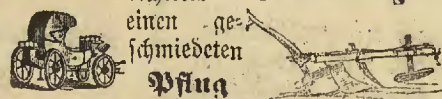 einen ge-
schmiedeten
Pflug